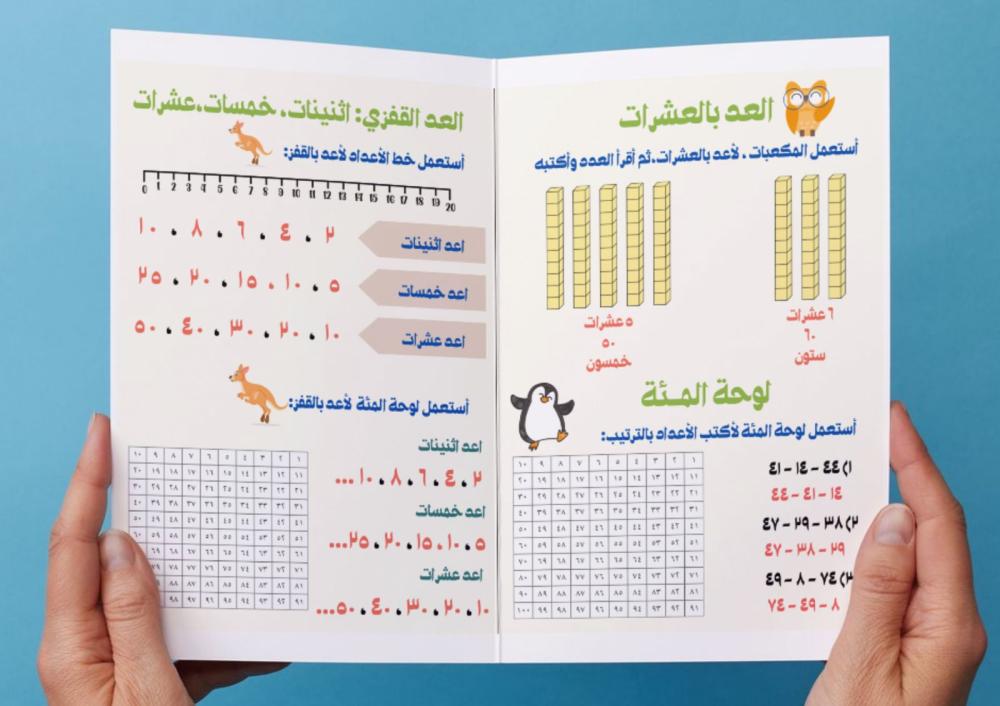 العد بالعشرات
أستعمل المكعبات ، لأعد بالعشرات،ثم أقرأ العدد وأكتبه
٦ عشرات
٦٠
ستون
٥ عشرات
٥٠
خمسون
لوحة المئة
أستعمل لوحة المئة لأكتب الأعداد بالترتيب:
١) ٤٤ – ١٤ – ٤١
١٤ – ٤١ – ٤٤
٢) ٣٨ – ٢٩ – ٤٧
٢٩ – ٣٨ – ٤٧
٣) ٧٤ – ٨ – ٤٩
٨ – ٤٩ – ٧٤
١ ٢ ٣ ٤ ٥ ٦ ٧ ٨ ٩ ١٠
١١ ١٢ ١٣ ١٤ ١٥ ١٦ ١٧ ١٨ ١٩ ٢٠
٢١ ٢٢ ٢٣ ٢٤ ٢٥ ٢٦ ٢٧ ٢٨ ٢٩ ٣٠
٣١ ٣٢ ٣٣ ٣٤ ٣٥ ٣٦ ٣٧ ٣٨ ٣٩ ٤٠
٤١ ٤٢ ٤٣ ٤٤ ٤٥ ٤٦ ٤٧ ٤٨ ٤٩ ٥٠
٥١ ٥٢ ٥٣ ٥٤ ٥٥ ٥٦ ٥٧ ٥٨ ٥٩ ٦٠
٦١ ٦٢ ٦٣ ٦٤ ٦٥ ٦٦ ٦٧ ٦٨ ٦٩ ٧٠
٧١ ٧٢ ٧٣ ٧٤ ٧٥ ٧٦ ٧٧ ٧٨ ٧٩ ٨٠
٨١ ٨٢ ٨٣ ٨٤ ٨٥ ٨٦ ٨٧ ٨٨ ٨٩ ٩٠
٩١ ٩٢ ٩٣ ٩٤ ٩٥ ٩٦ ٩٧ ٩٨ ٩٩ ١٠٠
العد القفزي: اثنينات، خمسات،عشرات
أستعمل خط الأعداد لأعد بالقفز:
0 1 2 3 4 5 6 7 8 9 10 11 12 13 14 15 16 17 18 19 20
اعد اثنينات
٢ ، ٤ ، ٦ ، ٨ ، ١٠
اعد خمسات
٥ ، ١٠ ، ١٥ ، ٢٠ ، ٢٥
اعد عشرات
١٠ ، ٢٠ ، ٣٠ ، ٤٠ ، ٥٠
أستعمل لوحة المئة لأعد بالقفز:
اعد اثنينات
٢ ، ٤ ، ٦ ، ٨ ، ١٠ ...
اعد خمسات
٥ ، ١٠ ، ١٥ ، ٢٠ ، ٢٥...
اعد عشرات
١٠ ، ٢٠ ، ٣٠ ، ٤٠ ، ٥٠...
١ ٢ ٣ ٤ ٥ ٦ ٧ ٨ ٩ ١٠
١١ ١٢ ١٣ ١٤ ١٥ ١٦ ١٧ ١٨ ١٩ ٢٠
٢١ ٢٢ ٢٣ ٢٤ ٢٥ ٢٦ ٢٧ ٢٨ ٢٩ ٣٠
٣١ ٣٢ ٣٣ ٣٤ ٣٥ ٣٦ ٣٧ ٣٨ ٣٩ ٤٠
٤١ ٤٢ ٤٣ ٤٤ ٤٥ ٤٦ ٤٧ ٤٨ ٤٩ ٥٠
٥١ ٥٢ ٥٣ ٥٤ ٥٥ ٥٦ ٥٧ ٥٨ ٥٩
٦١ ٦٢ ٦٣ ٦٤ ٦٥ ٦٦ ٦٧ ٦٨ ٦٩
٧١ ٧٢ ٧٣ ٧٤ ٧٥ ٧٦ ٧٧ ٧٨
٨١ ٨٢ ٨٣ ٨٤ ٨٥ ٨٦ ٨٧ ٨٨
٩١ ٩٢ ٩٣ ٩٤ ٩٥ ٩٦ ٩٧ ٩٨